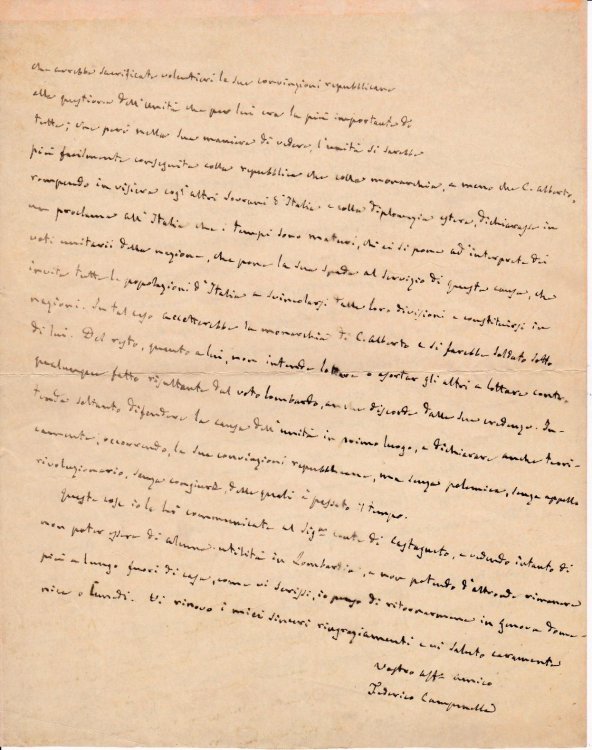 che avrebbe sacrificate volentieri le sue convinzioni repubblicane
alla questione dell'Unità che per lui era la più importante di
tutte; che però nella sua maniera di vedere, l'unità si sarebbe
più facilmente conseguita colla repubblica che colla monarchia, a meno che C. Alberto,
rompendo in visiera cogl'altri Sovrani d'Italia e colla diplomazia estera, dichiarasse in
un proclama all'Italia che i tempi sono maturi, ch'ei si pone ad interprete dei
voti unitarii della nazione, che pone la sua spada al servizio di questa causa, che
invita tutte le popolazioni d'Italia a svincolarsi dalle loro divisioni e constituirsi in
nazioni. In tal caso accetterebbe la monarchia di C. Alberto e si farebbe soldato sotto
di lui. Del resto, quanto a lui, non intende lottare o esortar gli altri a lottare contro
qualunque fatto risultante dal voto lombardo, anche discorde dalle sue credenze. In-
tende soltanto difendere la causa dell'unità in primo luogo, e dichiarare anche teori-
camente, occorrendo, le sue convinzioni repubblicane, ma senza polemica, senza appello
rivoluzionario, senza congiure, delle quali è passato il tempo.
Queste cose io le ho communicate al Sigr. conte di Castagneto, e vedendo intanto di
non poter essere di alcuna utilità in Lombardia, e non potendo d'altronde rimanere
più a lungo fuori di casa, come vi scrissi, io penso di ritornarmene in Genova dome-
nica o Lunedì. Vi rinovo i miei sinceri ringraziamenti e vi saluto caramente
Vostro affo. amico
Federico Campanella